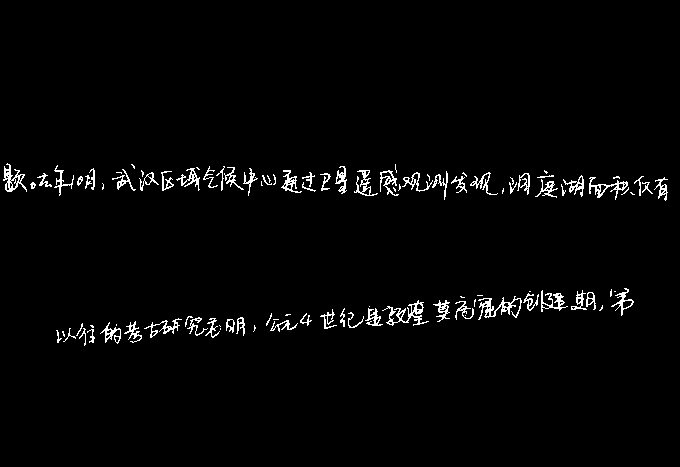 题。去年10月,武汉区域气候中心通过卫星遥感观测发现,洞庭湖面积仅有
以往的考古研究表明,公元4世纪是敦煌莫高窟的创建期,第